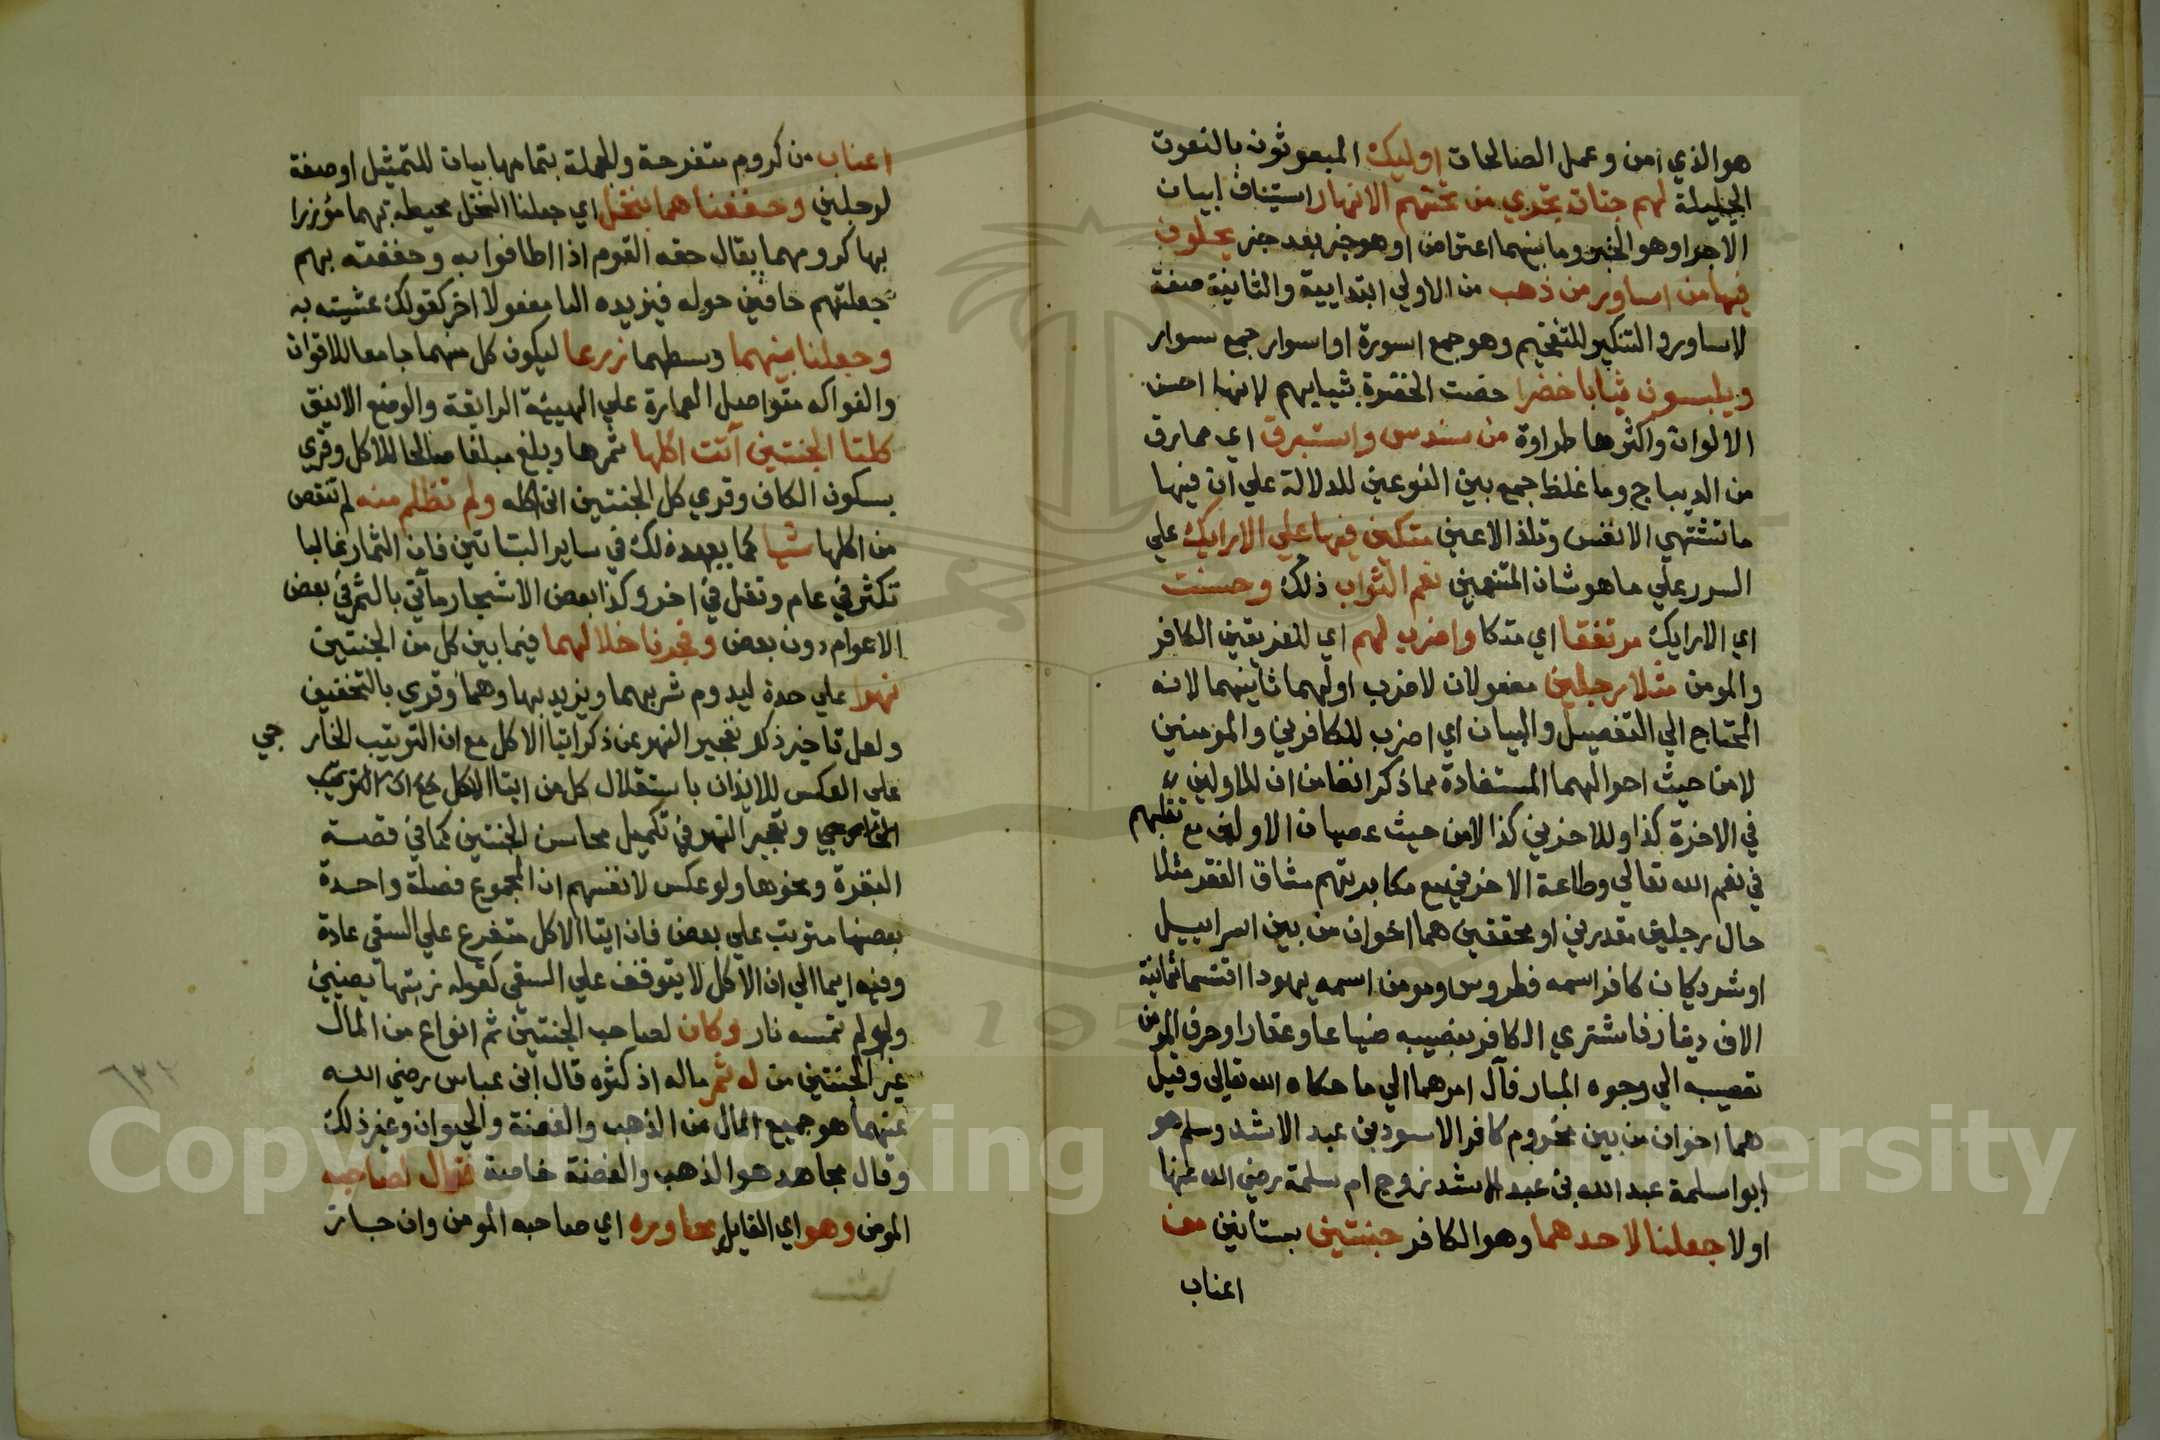 هو الذي امن وعمل الصالحات اوليك المبعوثون بالنعوت
الجليلة لهم جنات تجري من تحتهم الانهار استيناف لبيان
الاجر او هو الخبر وما بينهما اعتراض او هو خبر بعد خبر يحلون
فيها من اساور من ذهب من الاولي ابتدايية والثانية صفة
لاساور والتنكير للتفخيم وهو جمع اسورة او اسوار جمع سوار
ويلبسون ثيابا خضرا خصت الخضرة بثيابهم لانها احسن
الالوان واكثرها طراوة من سندس واستبرق اي ممارق
من الديباج وما غلظ جمع بين النوعين للدلالة علي ان فيها
ما تشتهي الانفس وتلذ الاعين متكين فيها علي الارايك علي
السرر علي ما هو شان المتنعمين نعم الثواب ذلك وحسنت
اي الارايك مرتفقا اي متكا واضرب لهم اي للفريقين الكافر
والمومن مثلا رجلين مفعولان لاضرب اولهما ثانيهما لانه
المحتاج الي التفصيل والبيان اي اضرب للكافرين والمومنين
لا من حيث احوالهما المستفادة مما ذكر انفا من ان للاولين
في الاخرة كذا وللاخرين كذا لا من حيث عصيان الاولين مع تقلبهم
في نعم الله تعالي وطاعة الاخرين مع مكابدتهم مشاق الفقر مثلا
حال رجلين مقدرين او محققين هما اخوان من بين اسراييل
او شريكان كافر اسمه فطروس ومومن اسمه يهودا اقتسما ثمانية
الاف دينار فاشتري الكافر بنصيبه ضياعا وعقارا وصرف المومن
نصيبه الي وجوه المبار فآل امرهما الي ما حكاه الله تعالي وقيل
هما اخوان من بين مخزوم كافر الاسود بن عبد الاشد ومسلم هو
ابو اسلمة عبد الله بن عبد الاشد زوج ام سلمة رضي الله عنها
اولا جعلنا لاحدهما وهو الكافر جنتين بستانين من
اعناب
اعناب من كروم متفرحة والجملة بتمامها بيان للتمثيل او صفة
لرجلين وحففناهما بنخل اي جعلنا النخل محيطة بهما مؤزرا
بها كرومهما يقال حفه القوم اذا اطافوا به وحففته بهم
جعلتهم حافين حوله فيزيده البا مفعولا اخر كقولك غشيته به
وجعلنا بينهما وسطهما زرعا ليكون كل منهما جامعا للاقوات
والفواكه متواصل العمارة علي الهيئة الرايقة والوضع الانيق
كلتا الجنتين آتت اكلها ثمرها وبلغ مبلغا صالحا للاكل وقري
بسكون الكاف وقري كل الجنتين اتي اكله ولم تظلم منه لم تنقص
من اكلها شيا كما يعهد ذلك في ساير البساتين فان الثمار غالبا
تكثر في عام وتقل في اخر وكذا بعض الاشجار مآتي بالثمر في بعض
الاعوام دون بعض وفجرنا خلالهما فيما بين كل من الجنتين
نهرا علي حدة ليدوم شربهما ويزيد بهاوهما وقري بالتخفيف
ولعل تاخير ذكر تفجير النهر عن ذكر ايتا الاكل مع ان الترتيب الخار جي
علي العكس للايذان باستقلال كل من ايتا الاكل مع ان الترتيب
الخارجي وتفجير النهر في تكميل محاسن الجنتين كما في قصة
البقرة ونحوها ولو عكس لانفهم ان المجموع فضلة واحدة
بعضها مترتب علي بعض فان ايتا الاكل متفرع علي السقي عادة
وفيه ايما الي ان الاكل لا يتوقف علي السقي كقوله زيتها يضيئ
ولو لم تمسه نار وكان لصاحب الجنتين ثم انواع من المال
غير الجنتين من له ثمر ماله اذ كثره قال ابن عباس رضي الله
عنهما هو جميع المال من الذهب والفضة والحيوان وغير ذلك
وقال مجاهد هو الذهب والفضة خاصة فقال لصاحبه
المومن وهو اي القايل يحاوره اي صاحبه المومن وان جاز
Copyright © King Saud University
1957